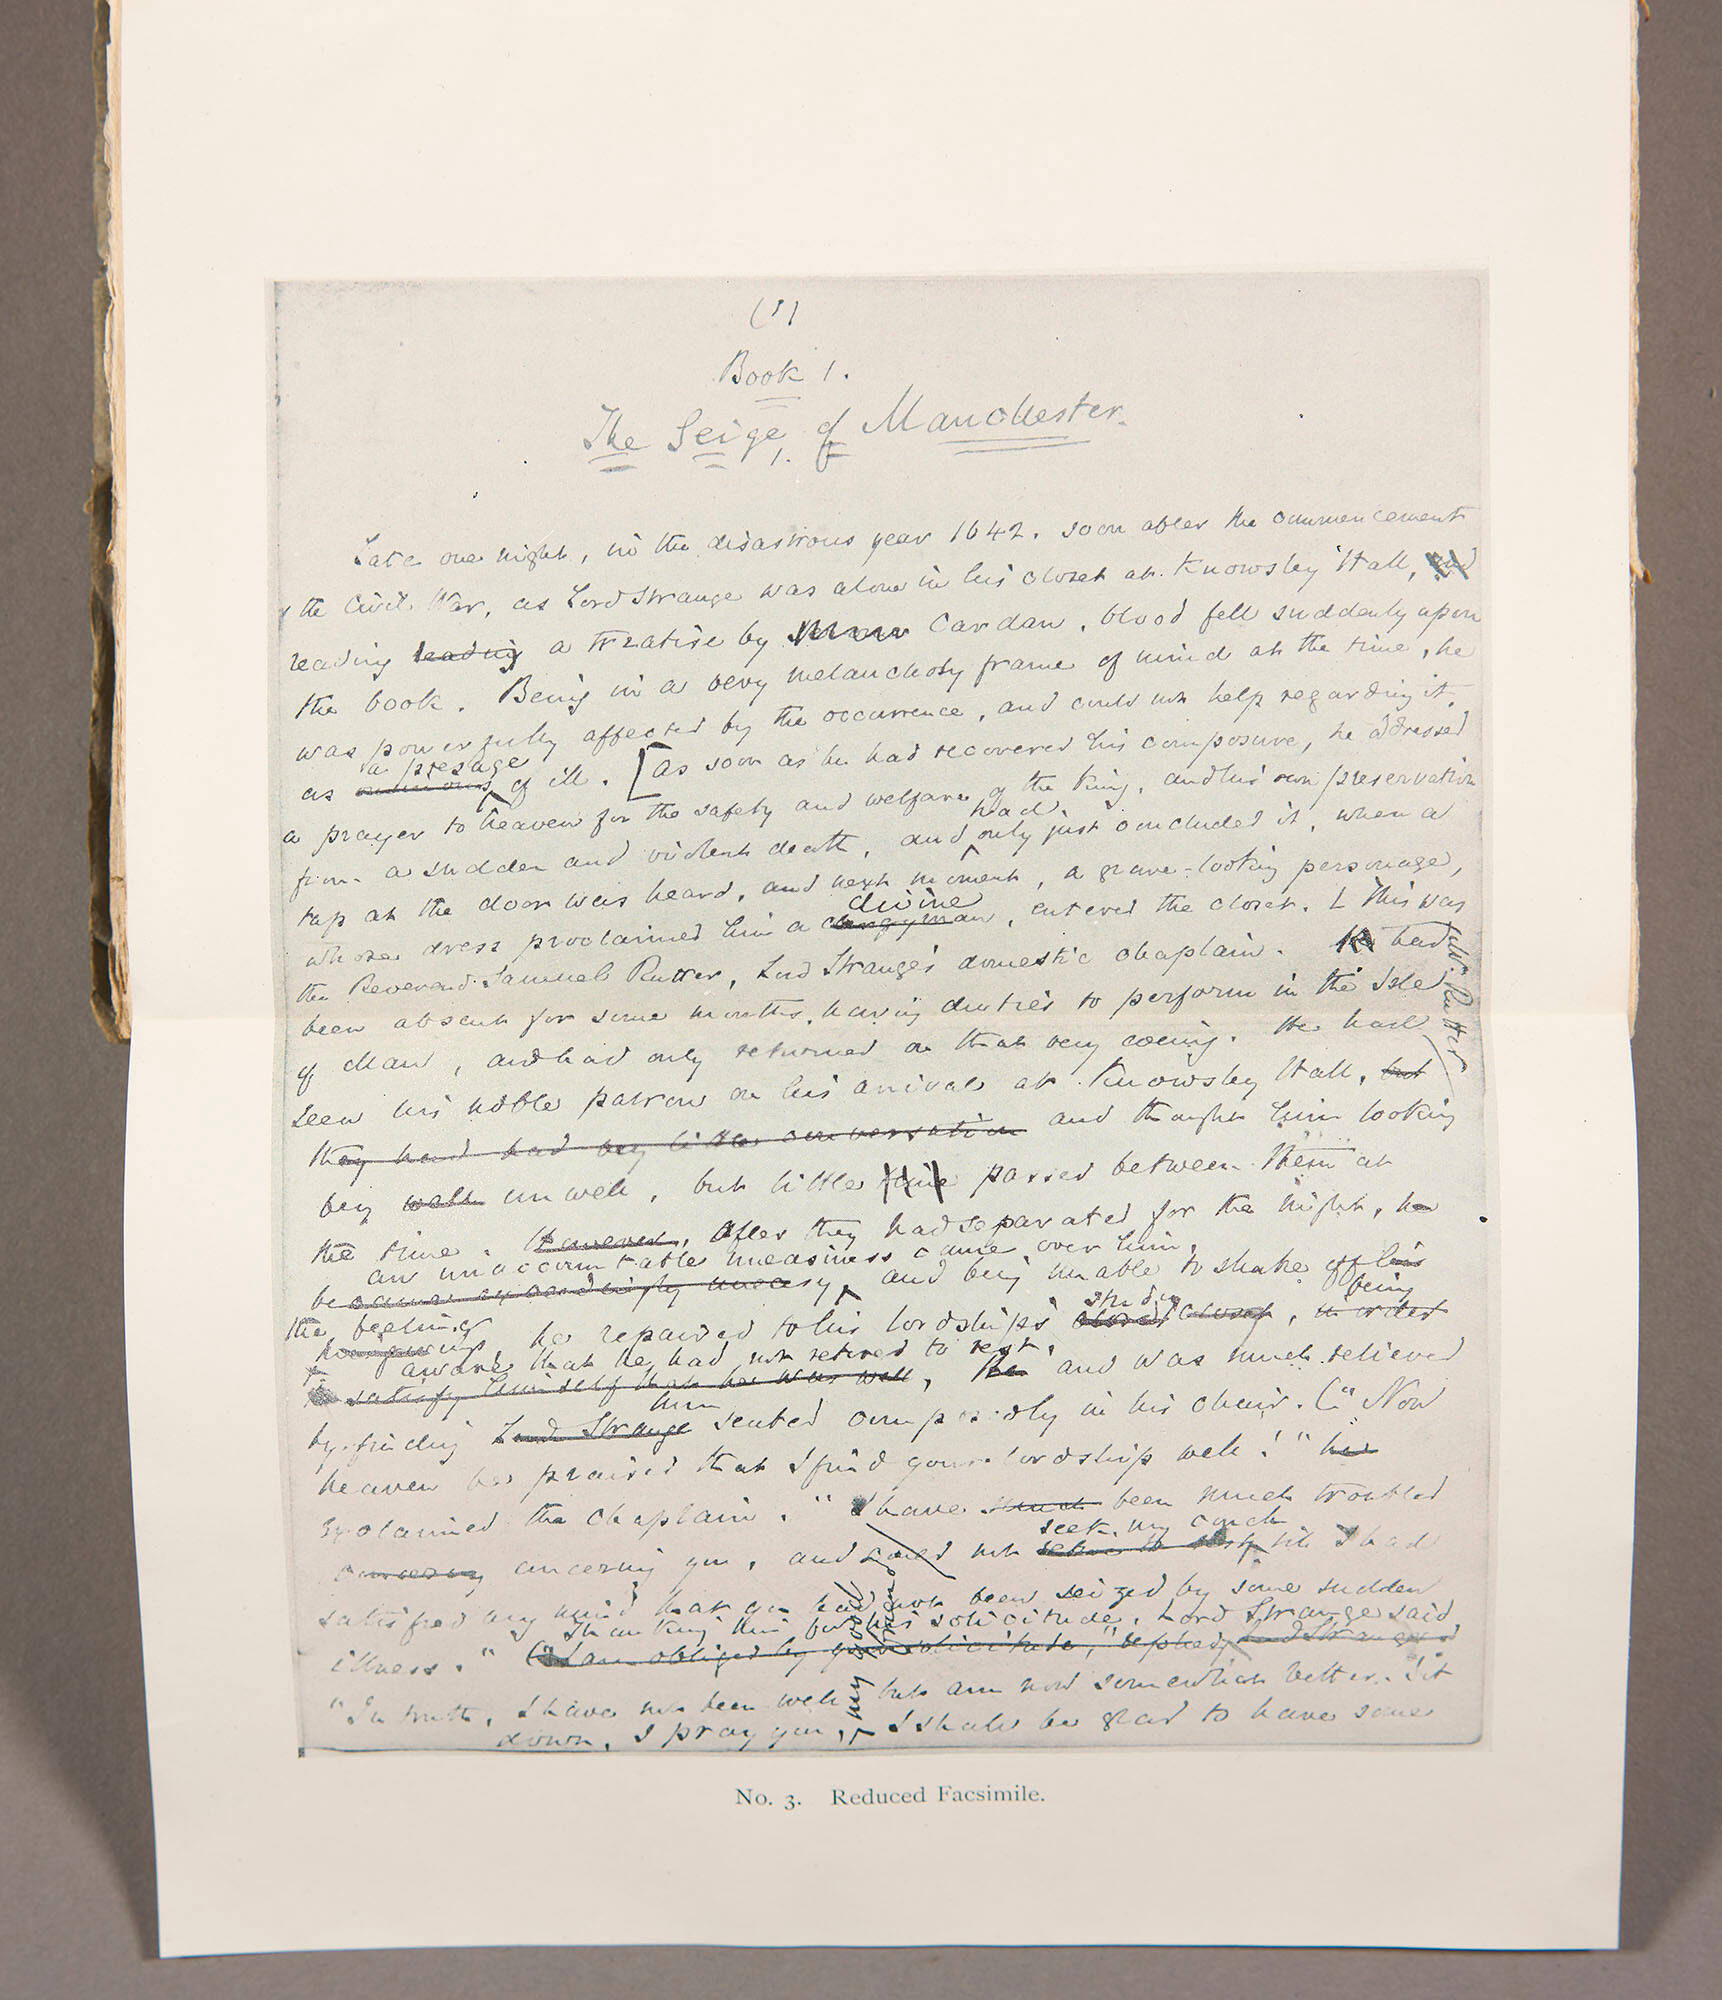 (1)
Book 1.
The Seige of Manchester.
1.
Late one night, in the disastrous year 1642, soon after the commencement
of the Civil War, as Lord Strange was alone in his closet at Knowsley Hall, and
reading reading a treatise by Cardan, blood fell suddenly upon
the book. Being in a very melancholy frame of mind at the time, he
was powerfully affected by the occurrence, and could not help regarding it
a presage
as ominous of ill. [As soon as he had recovered his composure, he addressed
a prayer to heaven for the safety and welfare of the King, and his own preservation
had
from a sudden and violent death, and only just concluded it, when a
tap at the door was heard, and next moment, a grave-looking personage,
divine
whose dress proclaimed him a clergyman, entered the closet. [This was
the Reverend Samuel Rutter, Lord Strange's domestic chaplain. He had
Mr. Rutter
been absent for some months, having duties to perform in the Isle
of Man, and had only returned on that very evening. He had
seen his noble patron on his arrival at Knowsley Hall, but
they had had very little conversation and thought him looking
very well unwell, but little time passed between them at
the time. However, After they had separated for the night, he
an unaccountable uneasiness came over him,
became exceedingly uneasy, and being unable to shake off his
the feeling studio being
he repaired to his lordship's closet, in order
aware that he had not retired to rest,
to satisfy himself that he was well, He and was much relieved
him
by finding Lord Strange seated composedly in his chair. ["Now
heaven be praised that I find your lordship well!" he
exclaimed the chaplain. "I have much been much troubled
seek my couch
concerning concerning you, and cared not retire to rest till I had
satisfied my mind that you had not been seized by some sudden
Thanking him for his solicitude, Lord Strange said
illness." "I am obliged by your solicitude," replied Lord Strange
"In truth, I have not been well but am now somewhat better. Sit
my good friend
down, I pray you, I shall be glad to have some
No. 3. Reduced Facsimile.